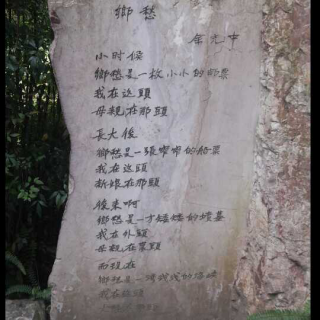 鄉愁
余光中
小时候
鄉愁是一枚小小的邮票
我在这頭
母親在那頭
長大後
鄉愁是一張窄窄的船票
我在这頭
新娘在那頭
後来啊
鄉愁是一方矮矮的墳墓
我在外頭
母親在裏頭
而現在
鄉愁是一湾浅浅的海峡
我在这頭